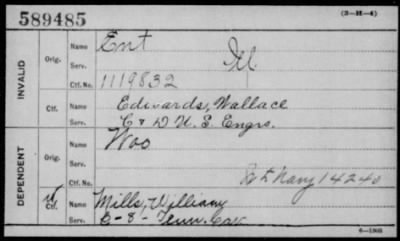 589485
(3-H-4)
INVALID
Orig.
Name Ent
Serv.
Ctf. No. 1119832
Ctf.
Name Edwards, Wallace
Serv. C & D U.S. Engrs.
DEPENDENT
Orig.
Name Woo
Serv.
Ctf. No.
Navy 14240
Ctf.
Name Mills, William
Serv. C-8-Tenn. Cav